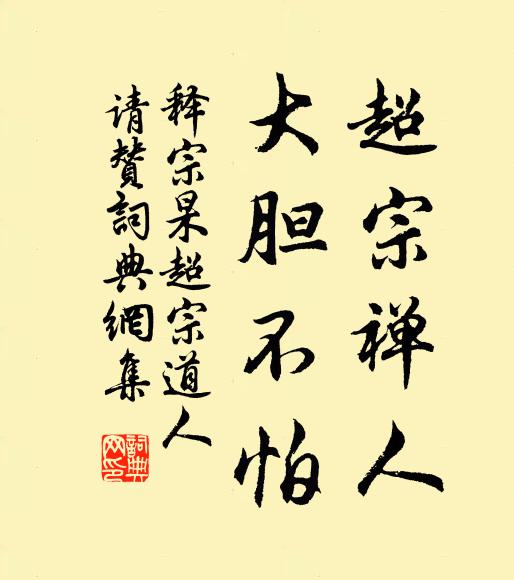 超宗禅人
大胆不怕
释宗杲超宗道人
请赞詞典網集
詞典
网印